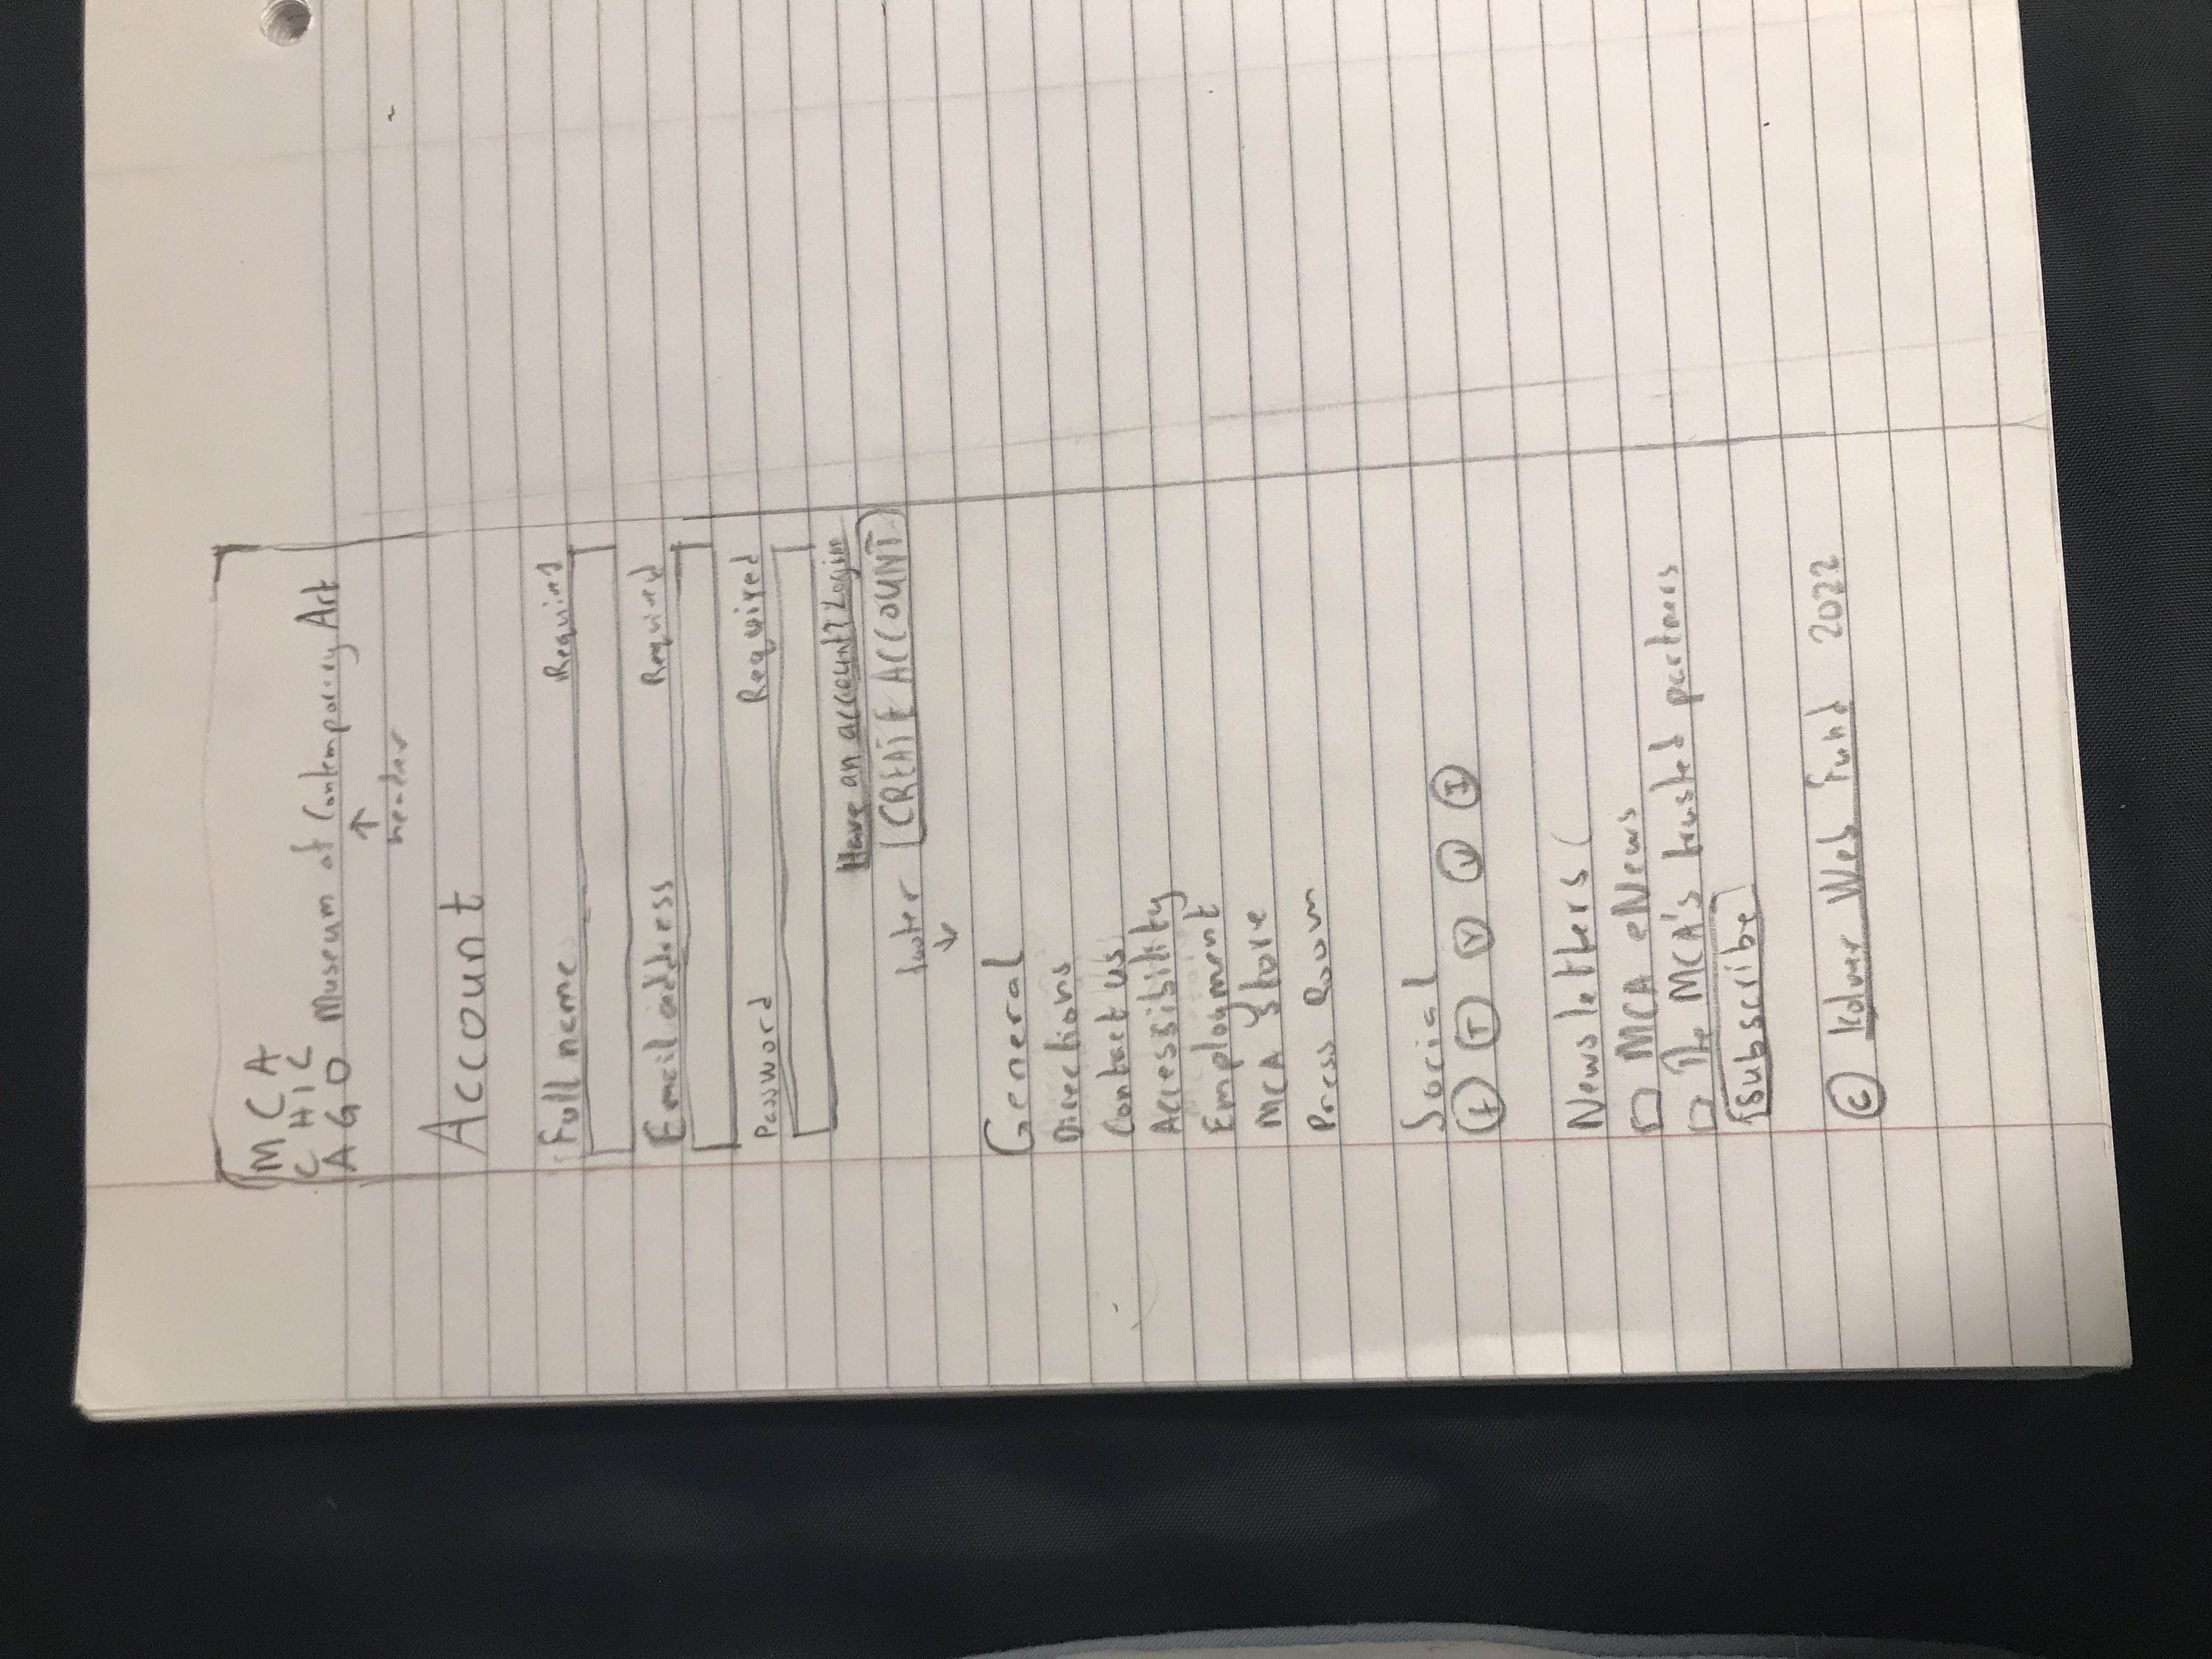 M C A
C H I C
A G O Museum of Contemporary Art
↑
header
Account
Full name Required
Email address Required
Password Required
Have an account? Login
footer CREATE ACCOUNT
↓
General
Directions
Contact us
Accessibility
Employment
MCA Store
Press Room
Social
f T Y V I
Newsletters (
MCA eNews
The MCA's trusted partners
Subscribe
© Web Fund 2022